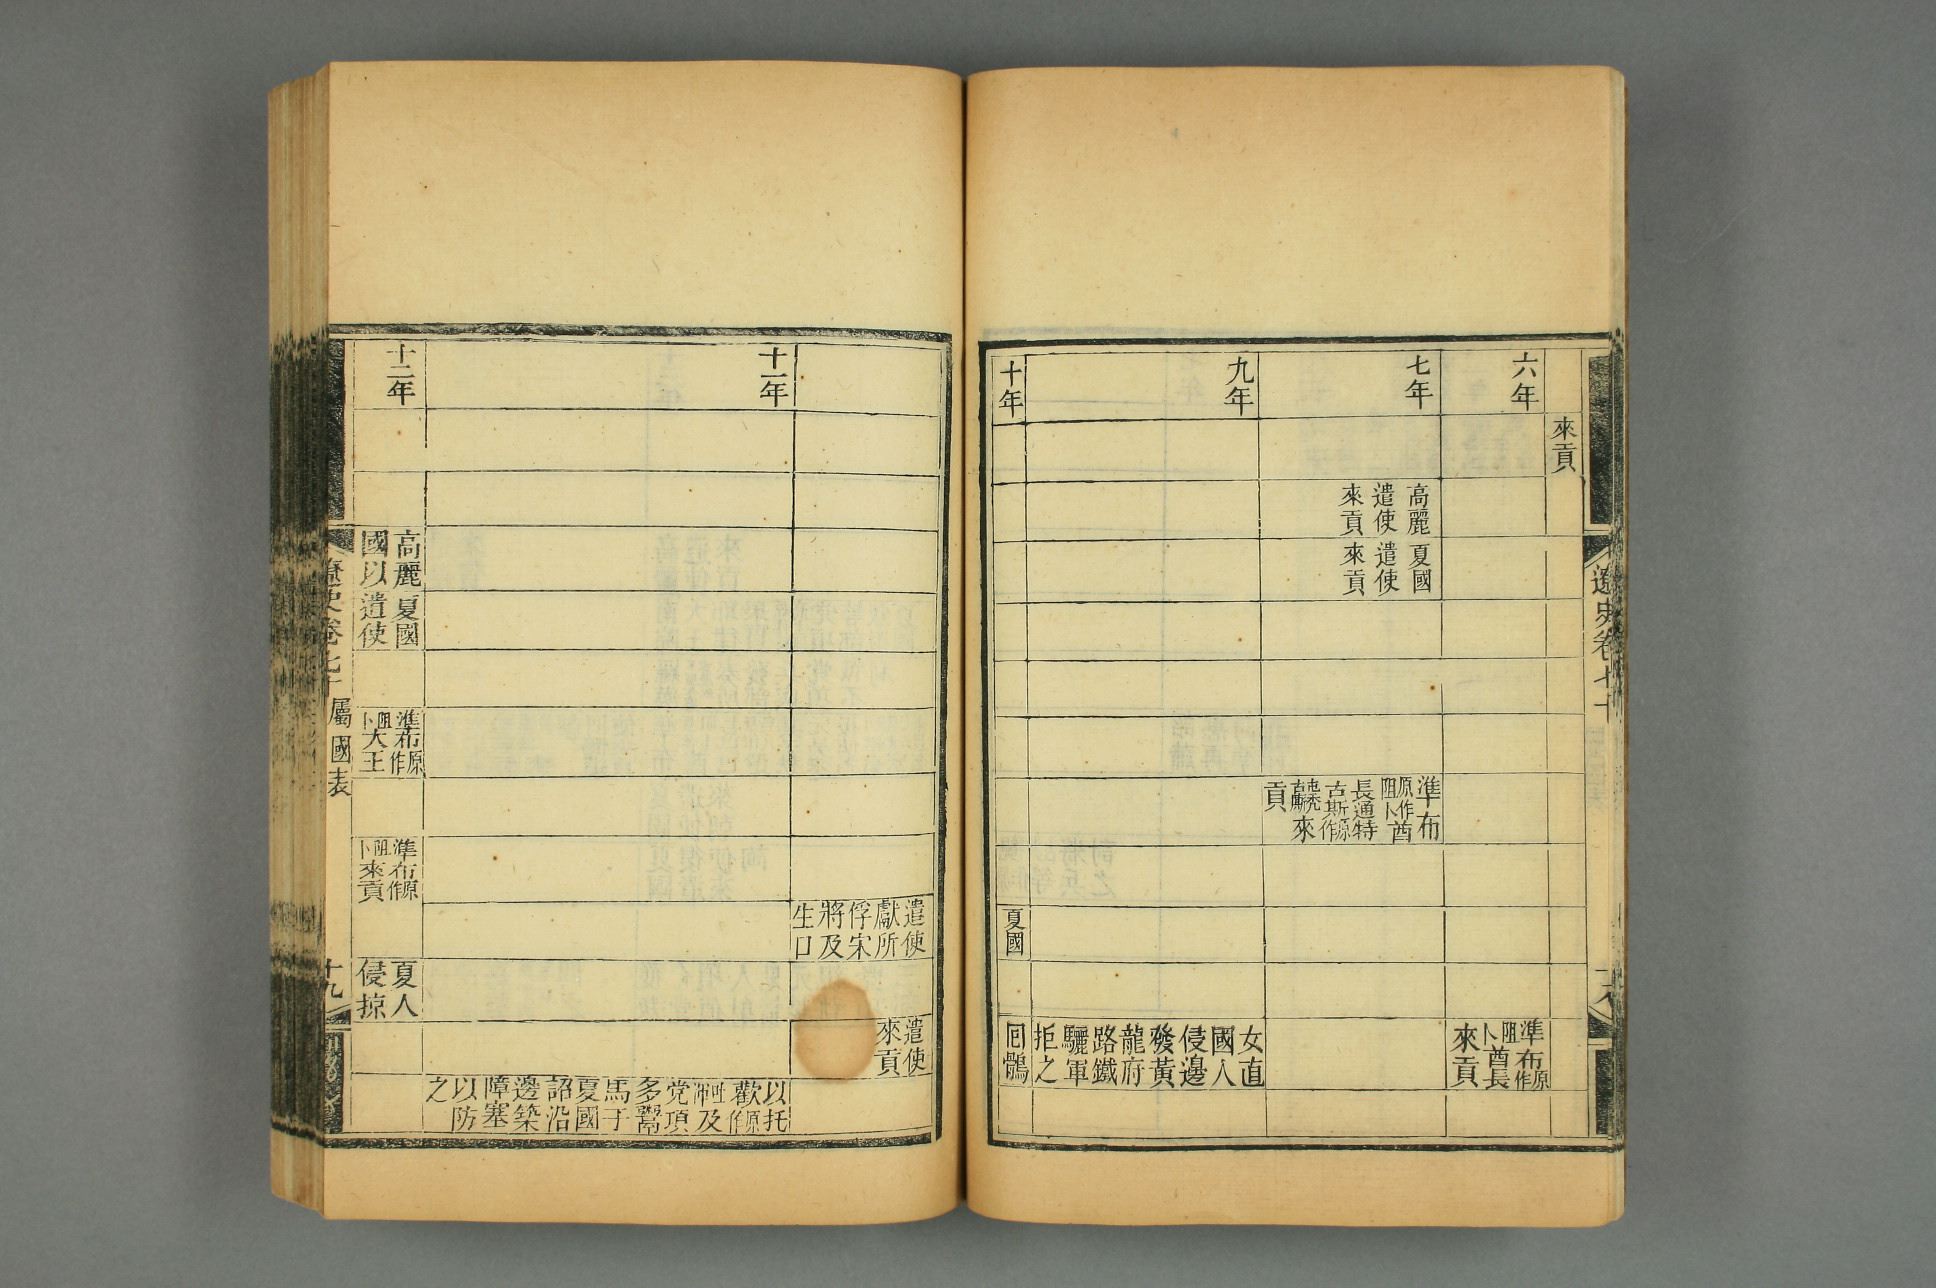 遼史卷七十
來貢
六年
準布原作阻卜酋長
來貢
七年
高麗
遣使
來貢
夏國
遣使
來貢
準布
原作阻卜酋
長通特
古斯原作
來
貢
九年
女直
國人
侵邊
發黃
龍府
路鐵
驪軍
拒之
十年
夏國
回鶻
遣使
獻所
俘宋
將及
生口
遣使
來貢
十一年
以托
歡原作
及
党項
多鬻
馬于
夏國
詔沿
邊築
障塞
以防
之
十二年
高麗
國以
夏國
遣使
準布原作
阻卜大王
準布原作
阻卜來貢
夏人
侵掠
遼史卷七十
屬國表
十九